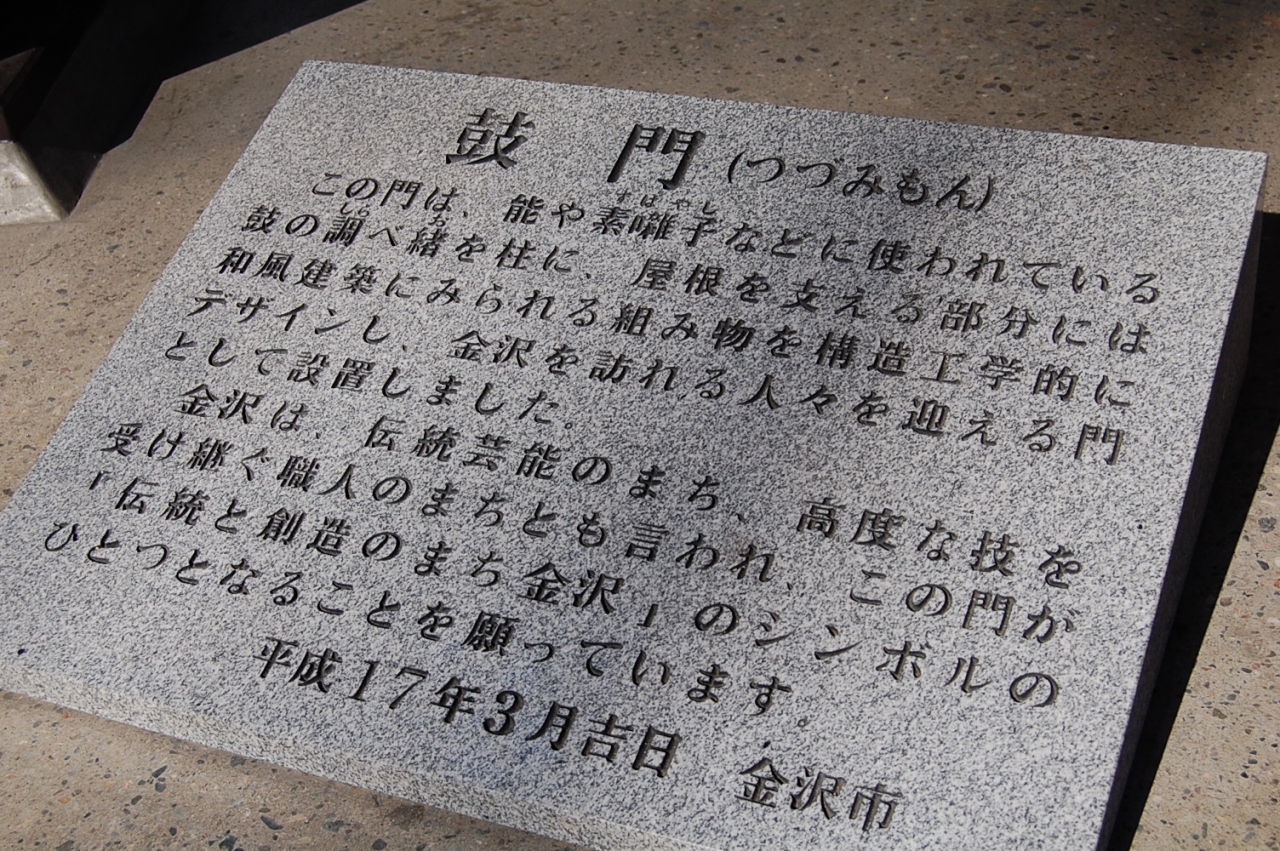 鼓 門 (つづみもん)
すばやし
この門は、能や素囃子などに使われている
しら お
鼓の調べ緒を柱に、屋根を支える部分には
和風建築にみられる組み物を構造工学的に
デザインし、金沢を訪れる人々を迎える門
として設置しました。
金沢は、伝統芸能のまち、高度な技を
受け継ぐ職人のまちとも言われ、この門が
「伝統と創造のまち金沢」のシンボルの
ひとつとなることを願っています。
平成17年3月吉日 金沢市